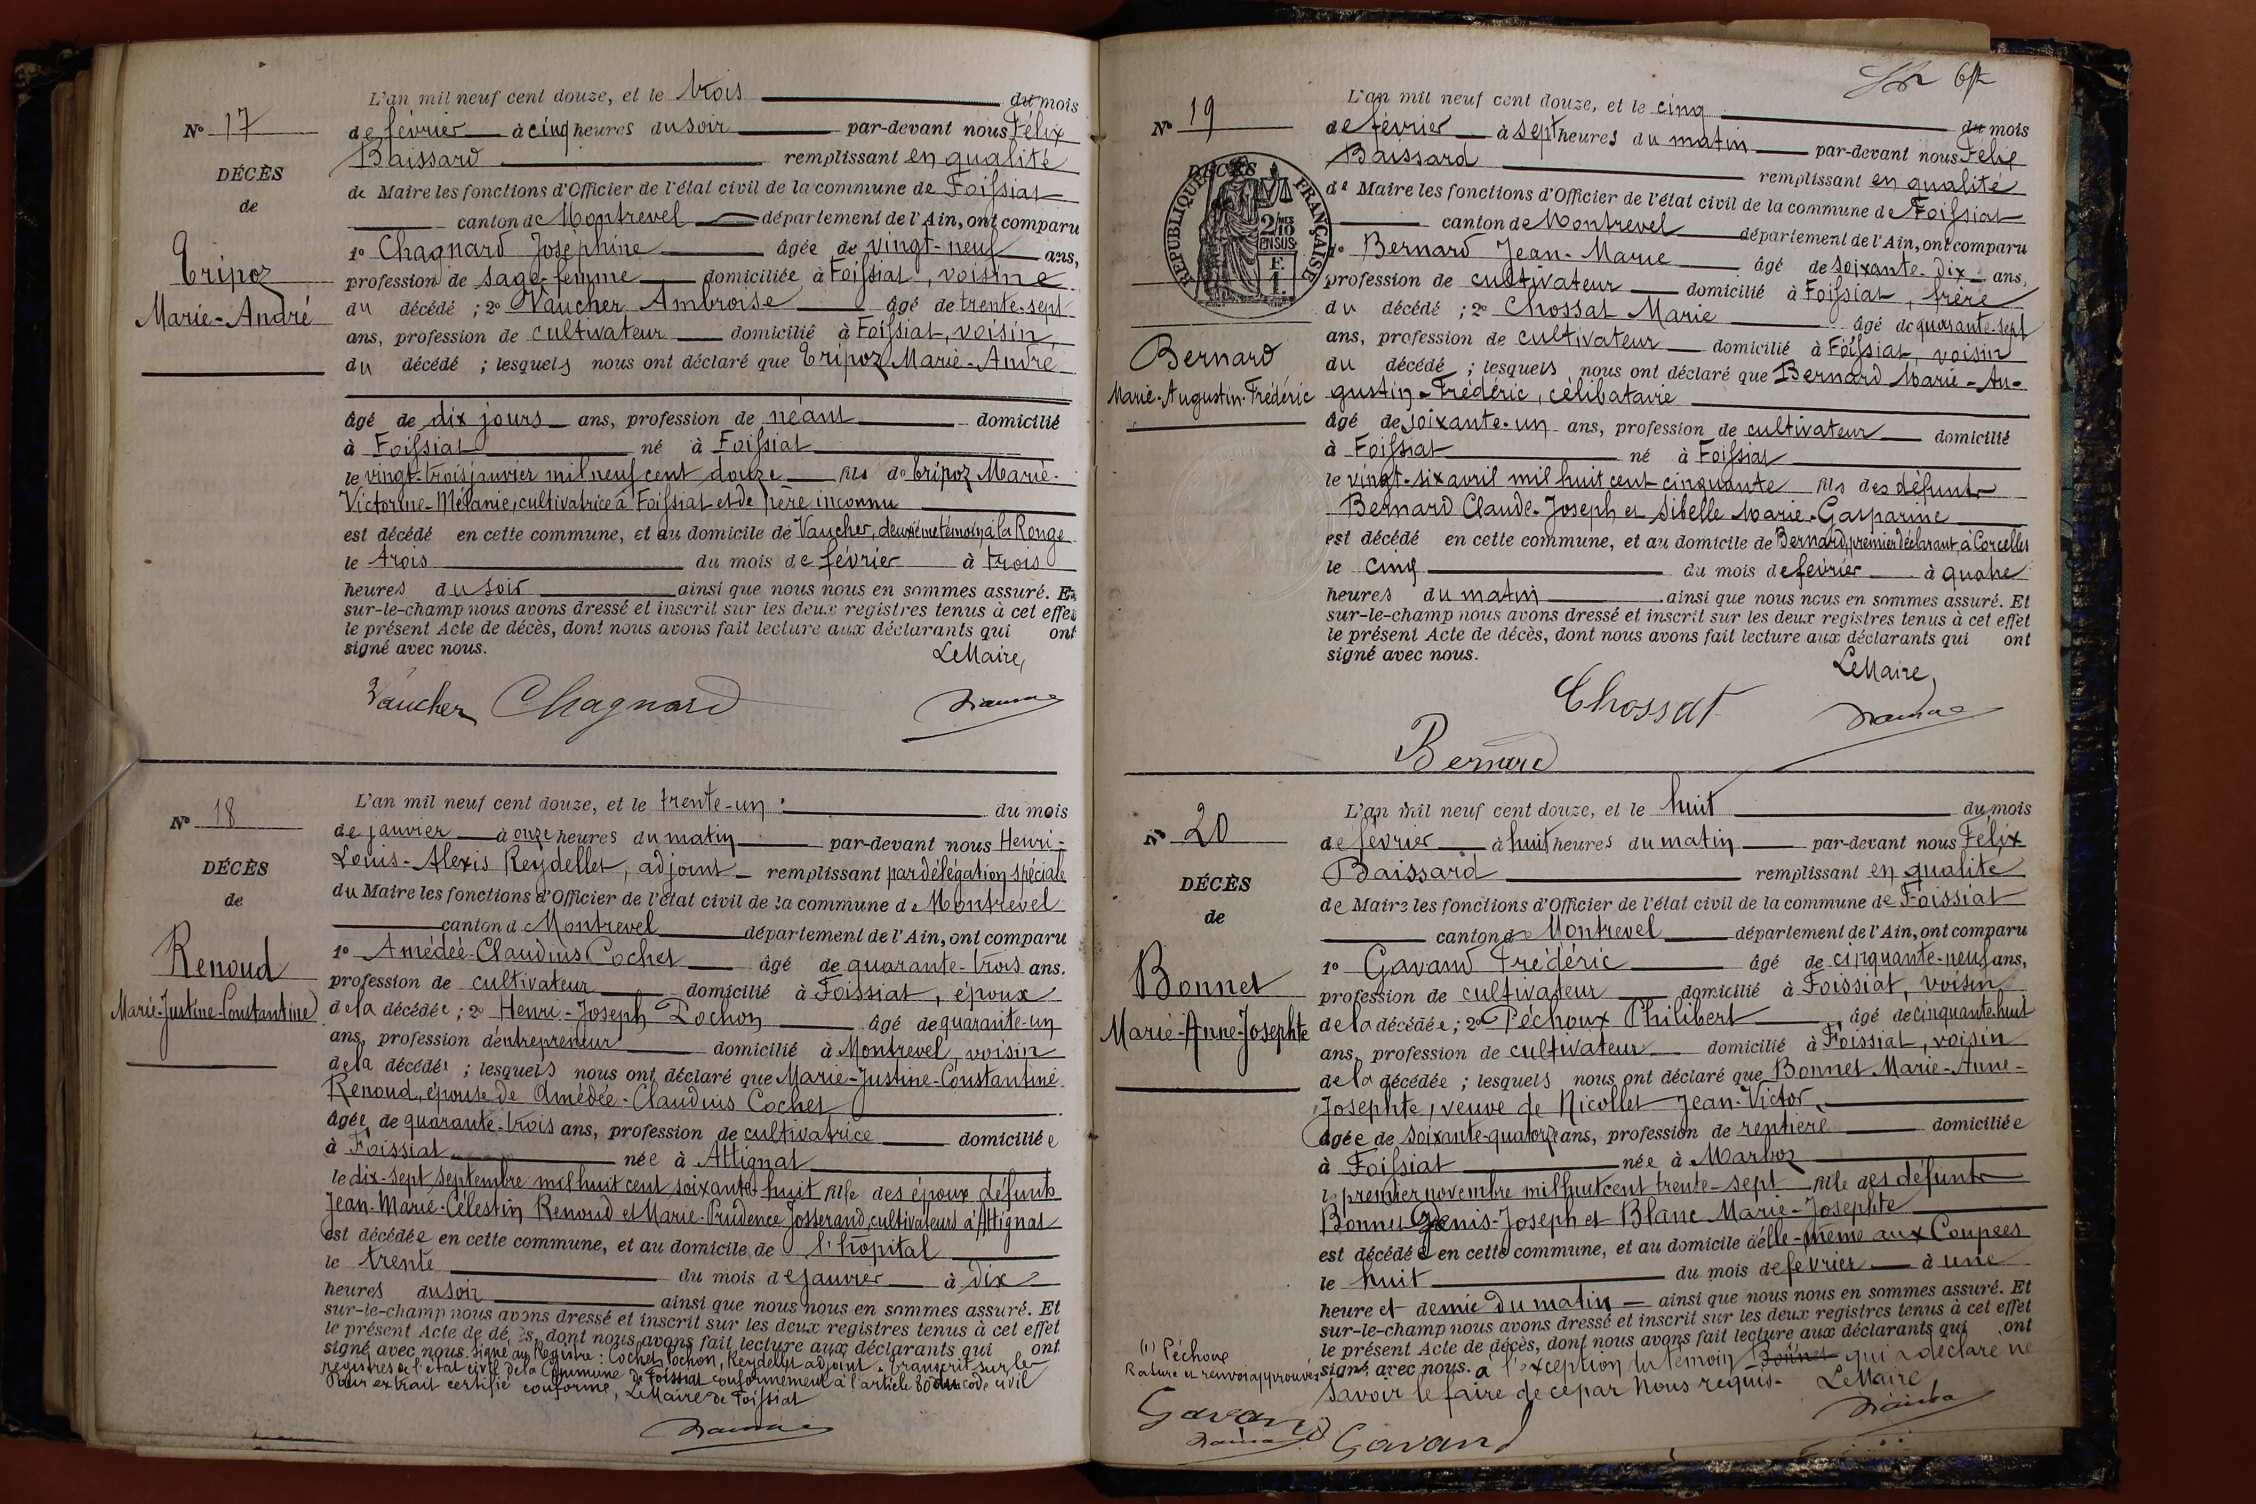 L'an mil neuf cent douze, et le trois du mois
N° 17
de février à cinq heures du soir par-devant nous Félix
Baissard remplissant en qualité
DÉCÈS
de Maire les fonctions d'Officier de l'état civil de la commune de Foissiat
de
canton de Montrevel département de l'Ain, ont comparu
1° Chagnard Joséphine âgée de vingt-neuf ans,
Tripoz
profession de sage-femme domiciliée à Foissiat, voisine
Marie-André
du décédé ; 2° Vaucher Ambroise âgé de trente-sept
ans, profession de cultivateur domicilié à Foissiat, voisin,
du décédé ; lesquels nous ont déclaré que Tripoz Marie-André
âgé de dix jours ans, profession de néant domicilié
à Foissiat né à Foissiat
le vingt-trois janvier mil neuf cent douze fils de Tripoz Marie-
Victorine-Mélanie, cultivatrice à Foissiat et de père inconnu
est décédé en cette commune, et au domicile de Vaucher, deuxième témoin à la Ronge
le trois du mois de février à trois
heures du soir ainsi que nous nous en sommes assuré. Et
sur-le-champ nous avons dressé et inscrit sur les deux registres tenus à cet effet
le présent Acte de décès, dont nous avons fait lecture aux déclarants qui ont
signé avec nous.
Le Maire,
Vaucher Chagnard
L'an mil neuf cent douze, et le trente-un du mois
N° 18
de janvier à onze heures du matin par-devant nous Henri-
Louis-Alexis Reydellet, adjoint remplissant par délégation spéciale
DÉCÈS
du Maire les fonctions d'Officier de l'état civil de la commune de Montrevel
de
canton de Montrevel département de l'Ain, ont comparu
Renoud
1° Amédée-Claudius Cochet âgé de quarante-trois ans.
profession de cultivateur domicilié à Foissiat, époux
Marie-Justine-Constantine
de la décédée ; 2° Henri-Joseph Pochon âgé de quarante-un
ans, profession d'entrepreneur domicilié à Montrevel, voisin
de la décédée ; lesquels nous ont déclaré que Marie-Justine-Constantine
Renoud, épouse de Amédée-Claudius Cochet
âgée de quarante-trois ans, profession de cultivatrice domiciliée
à Foissiat née à Attignat
le dix-sept septembre mil huit cent soixante-huit fille des époux défunts
Jean-Marie-Célestin Renoud et Marie-Prudence Josserand, cultivateurs à Attignat
est décédée en cette commune, et au domicile de l'hôpital
le trente du mois de janvier à dix
heures du soir ainsi que nous nous en sommes assuré. Et
sur-le-champ nous avons dressé et inscrit sur les deux registres tenus à cet effet
le présent Acte de décès, dont nous avons fait lecture aux déclarants qui ont
signé avec nous. Signé au Registre : Cochet, Pochon, Reydellet adjoint. Transcrit sur les
registres de l'état civil de la Commune de Foissiat conformément à l'article 80 du code civil
Pour extrait certifié conforme, Le Maire de Foissiat
L'an mil neuf cent douze, et le cinq du mois
N° 19
de février à sept heures du matin par-devant nous Félix
Baissard remplissant en qualité
DÉCÈS
RÉPUBLIQUE FRANÇAISE
2/10 EN SUS
F.
1.
de Maire les fonctions d'Officier de l'état civil de la commune de Foissiat
canton de Montrevel département de l'Ain, ont comparu
1° Bernard Jean-Marie âgé de soixante-dix ans,
profession de cultivateur domicilié à Foissiat, frère
du décédé ; 2° Chossat Marie âgé de quarante-sept
ans, profession de cultivateur domicilié à Foissiat, voisin
Bernard
Marie-Augustin-Frédéric
du décédé ; lesquels nous ont déclaré que Bernard Marie-Au-
gustin-Frédéric, célibataire
âgé de soixante-un ans, profession de cultivateur domicilié
à Foissiat né à Foissiat
le vingt-six avril mil huit cent cinquante fils des défunts
Bernard Claude-Joseph et Sibelle Marie-Gasparine
est décédé en cette commune, et au domicile de Bernard, premier déclarant, à Corcelles
le cinq du mois de février à quatre
heures du matin ainsi que nous nous en sommes assuré. Et
sur-le-champ nous avons dressé et inscrit sur les deux registres tenus à cet effet
le présent Acte de décès, dont nous avons fait lecture aux déclarants qui ont
signé avec nous.
Le Maire,
Chossat
Bernard
L'an mil neuf cent douze, et le huit du mois
N° 20
de février à huit heures du matin par-devant nous Félix
Baissard remplissant en qualité
DÉCÈS
de Maire les fonctions d'Officier de l'état civil de la commune de Foissiat
de
canton de Montrevel département de l'Ain, ont comparu
1° Gavand Frédéric âgé de cinquante-neuf ans,
Bonnet
profession de cultivateur domicilié à Foissiat, voisin
Marie-Anne-Josephte
de la décédée ; 2° Péchoux Philibert âgé de cinquante-huit
ans, profession de cultivateur domicilié à Foissiat, voisin
de la décédée ; lesquels nous ont déclaré que Bonnet Marie-Anne-
Josephte, veuve de Nicollet Jean-Victor,
âgée de soixante-quatorze ans, profession de rentière domiciliée
à Foissiat née à Marboz
le premier novembre mil huit cent trente-sept fille des défunts
Bonnet Denis-Joseph et Blanc Marie-Josephte
est décédée en cette commune, et au domicile d'elle-même aux Coupées
le huit du mois de février à une
heure et demie du matin ainsi que nous nous en sommes assuré. Et
sur-le-champ nous avons dressé et inscrit sur les deux registres tenus à cet effet
le présent Acte de décès, dont nous avons fait lecture aux déclarants qui ont
signé avec nous. à l'exception du témoin Bonnet qui a déclaré ne
savoir le faire de ce par nous requis. Le Maire
(1) Péchoux
Rature et renvoi approuvés
Gavand
Gavand